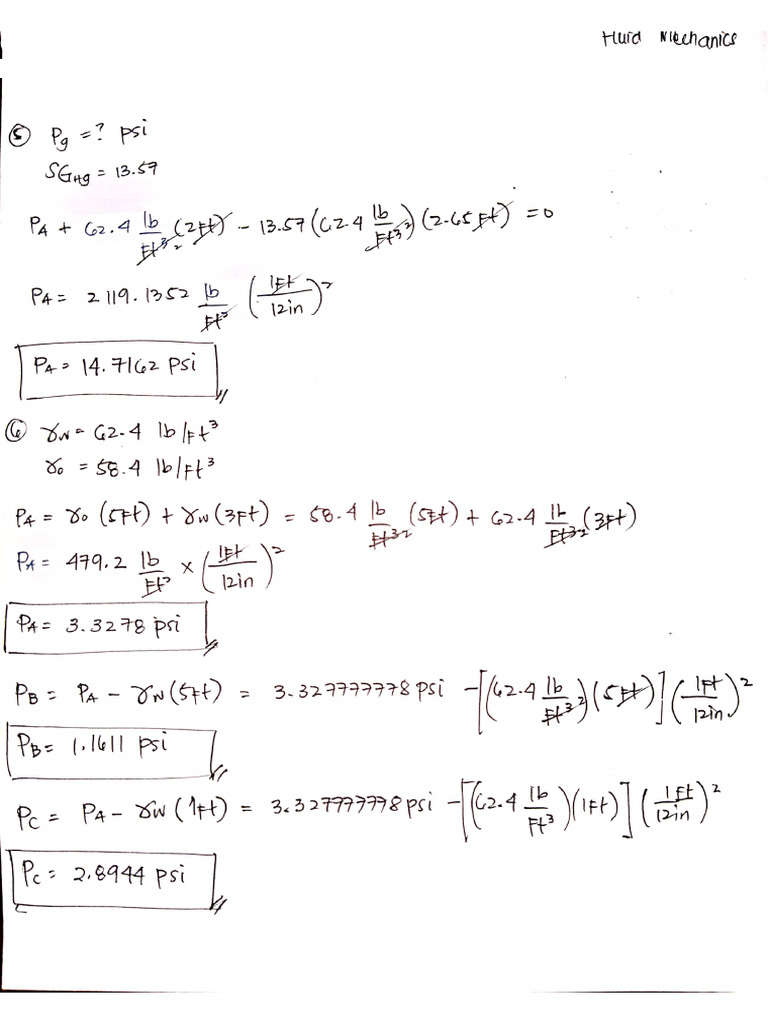 Fluid Mechanics
⑤ Pg = ? psi
SG Hg = 13.57
PA + 62.4 lb/Ft³ (2Ft) - 13.57 (62.4 lb/Ft³) (2.65 Ft) = 0
PA = 2119.1352 lb/Ft² (1Ft/12in)²
PA = 14.7162 psi
⑥ γW = 62.4 lb/Ft³
γo = 58.4 lb/Ft³
PA = γo (5Ft) + γW (3Ft) = 58.4 lb/Ft³ (5Ft) + 62.4 lb/Ft³ (3Ft)
PA = 479.2 lb/Ft² x (1Ft/12in)²
PA = 3.3278 psi
PB = PA - γW (5Ft) = 3.327777778 psi - [(62.4 lb/Ft³) (5Ft)] (1Ft/12in)²
PB = 1.1611 psi
PC = PA - γW (1Ft) = 3.327777778 psi - [(62.4 lb/Ft³) (1Ft)] (1Ft/12in)²
PC = 2.8944 psi